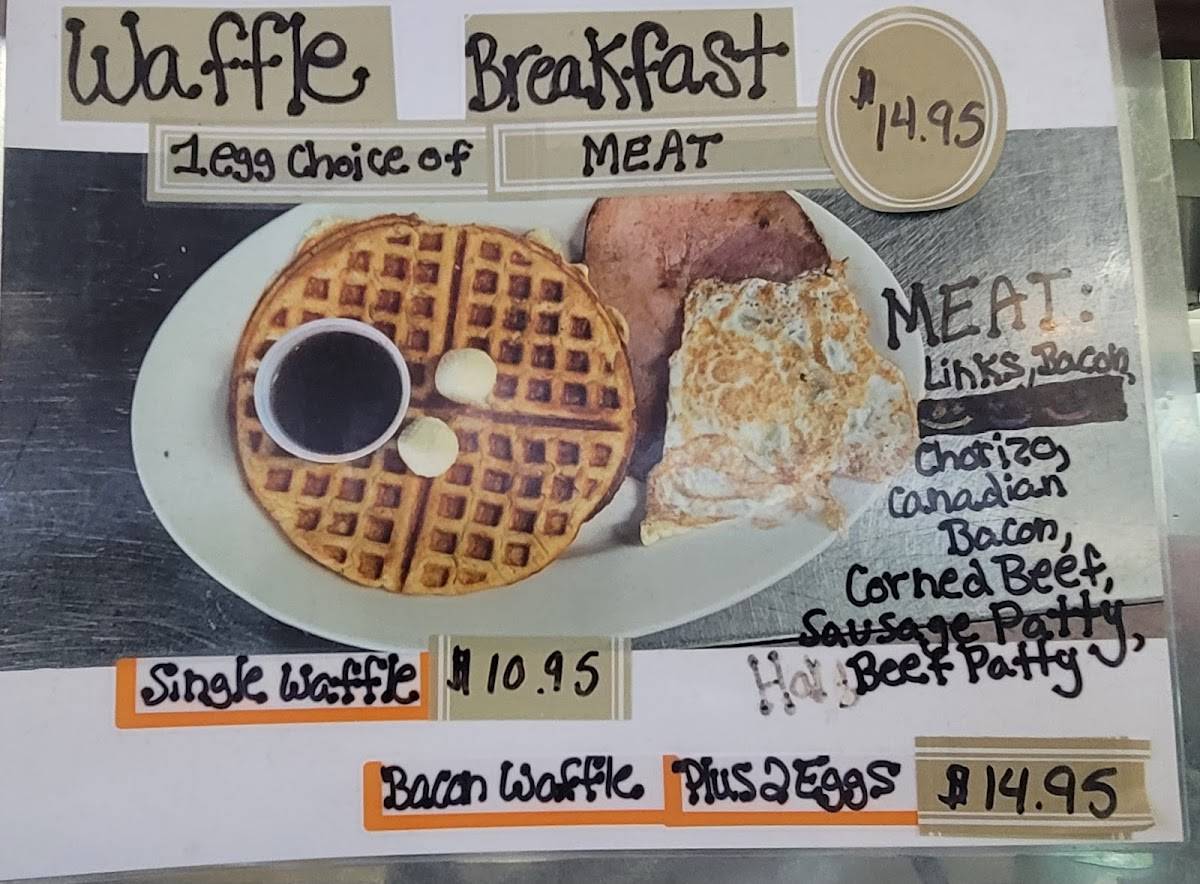 Waffle Breakfast
$14.95
1 egg Choice of MEAT
MEAT:
Links, Bacon,
Chorizo,
Canadian
Bacon,
Corned Beef,
Sausage Patty,
Beef Patty
Single Waffle $10.95
Bacon Waffle Plus 2 Eggs $14.95